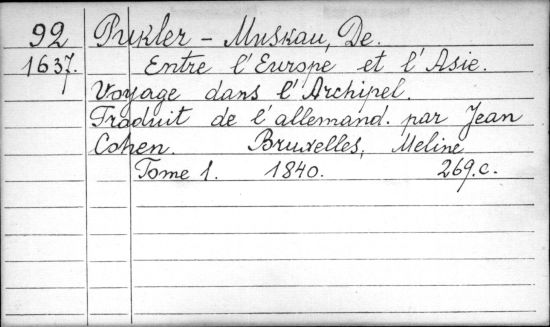 92 Pukler - Muskau, De.
1637. Entre l'Europe et l'Asie.
Voyage dans l'Archipel.
Traduit de l'allemand. par Jean
Cohen. Bruxelles, Meline
Tome 1. 1840. 269.c.